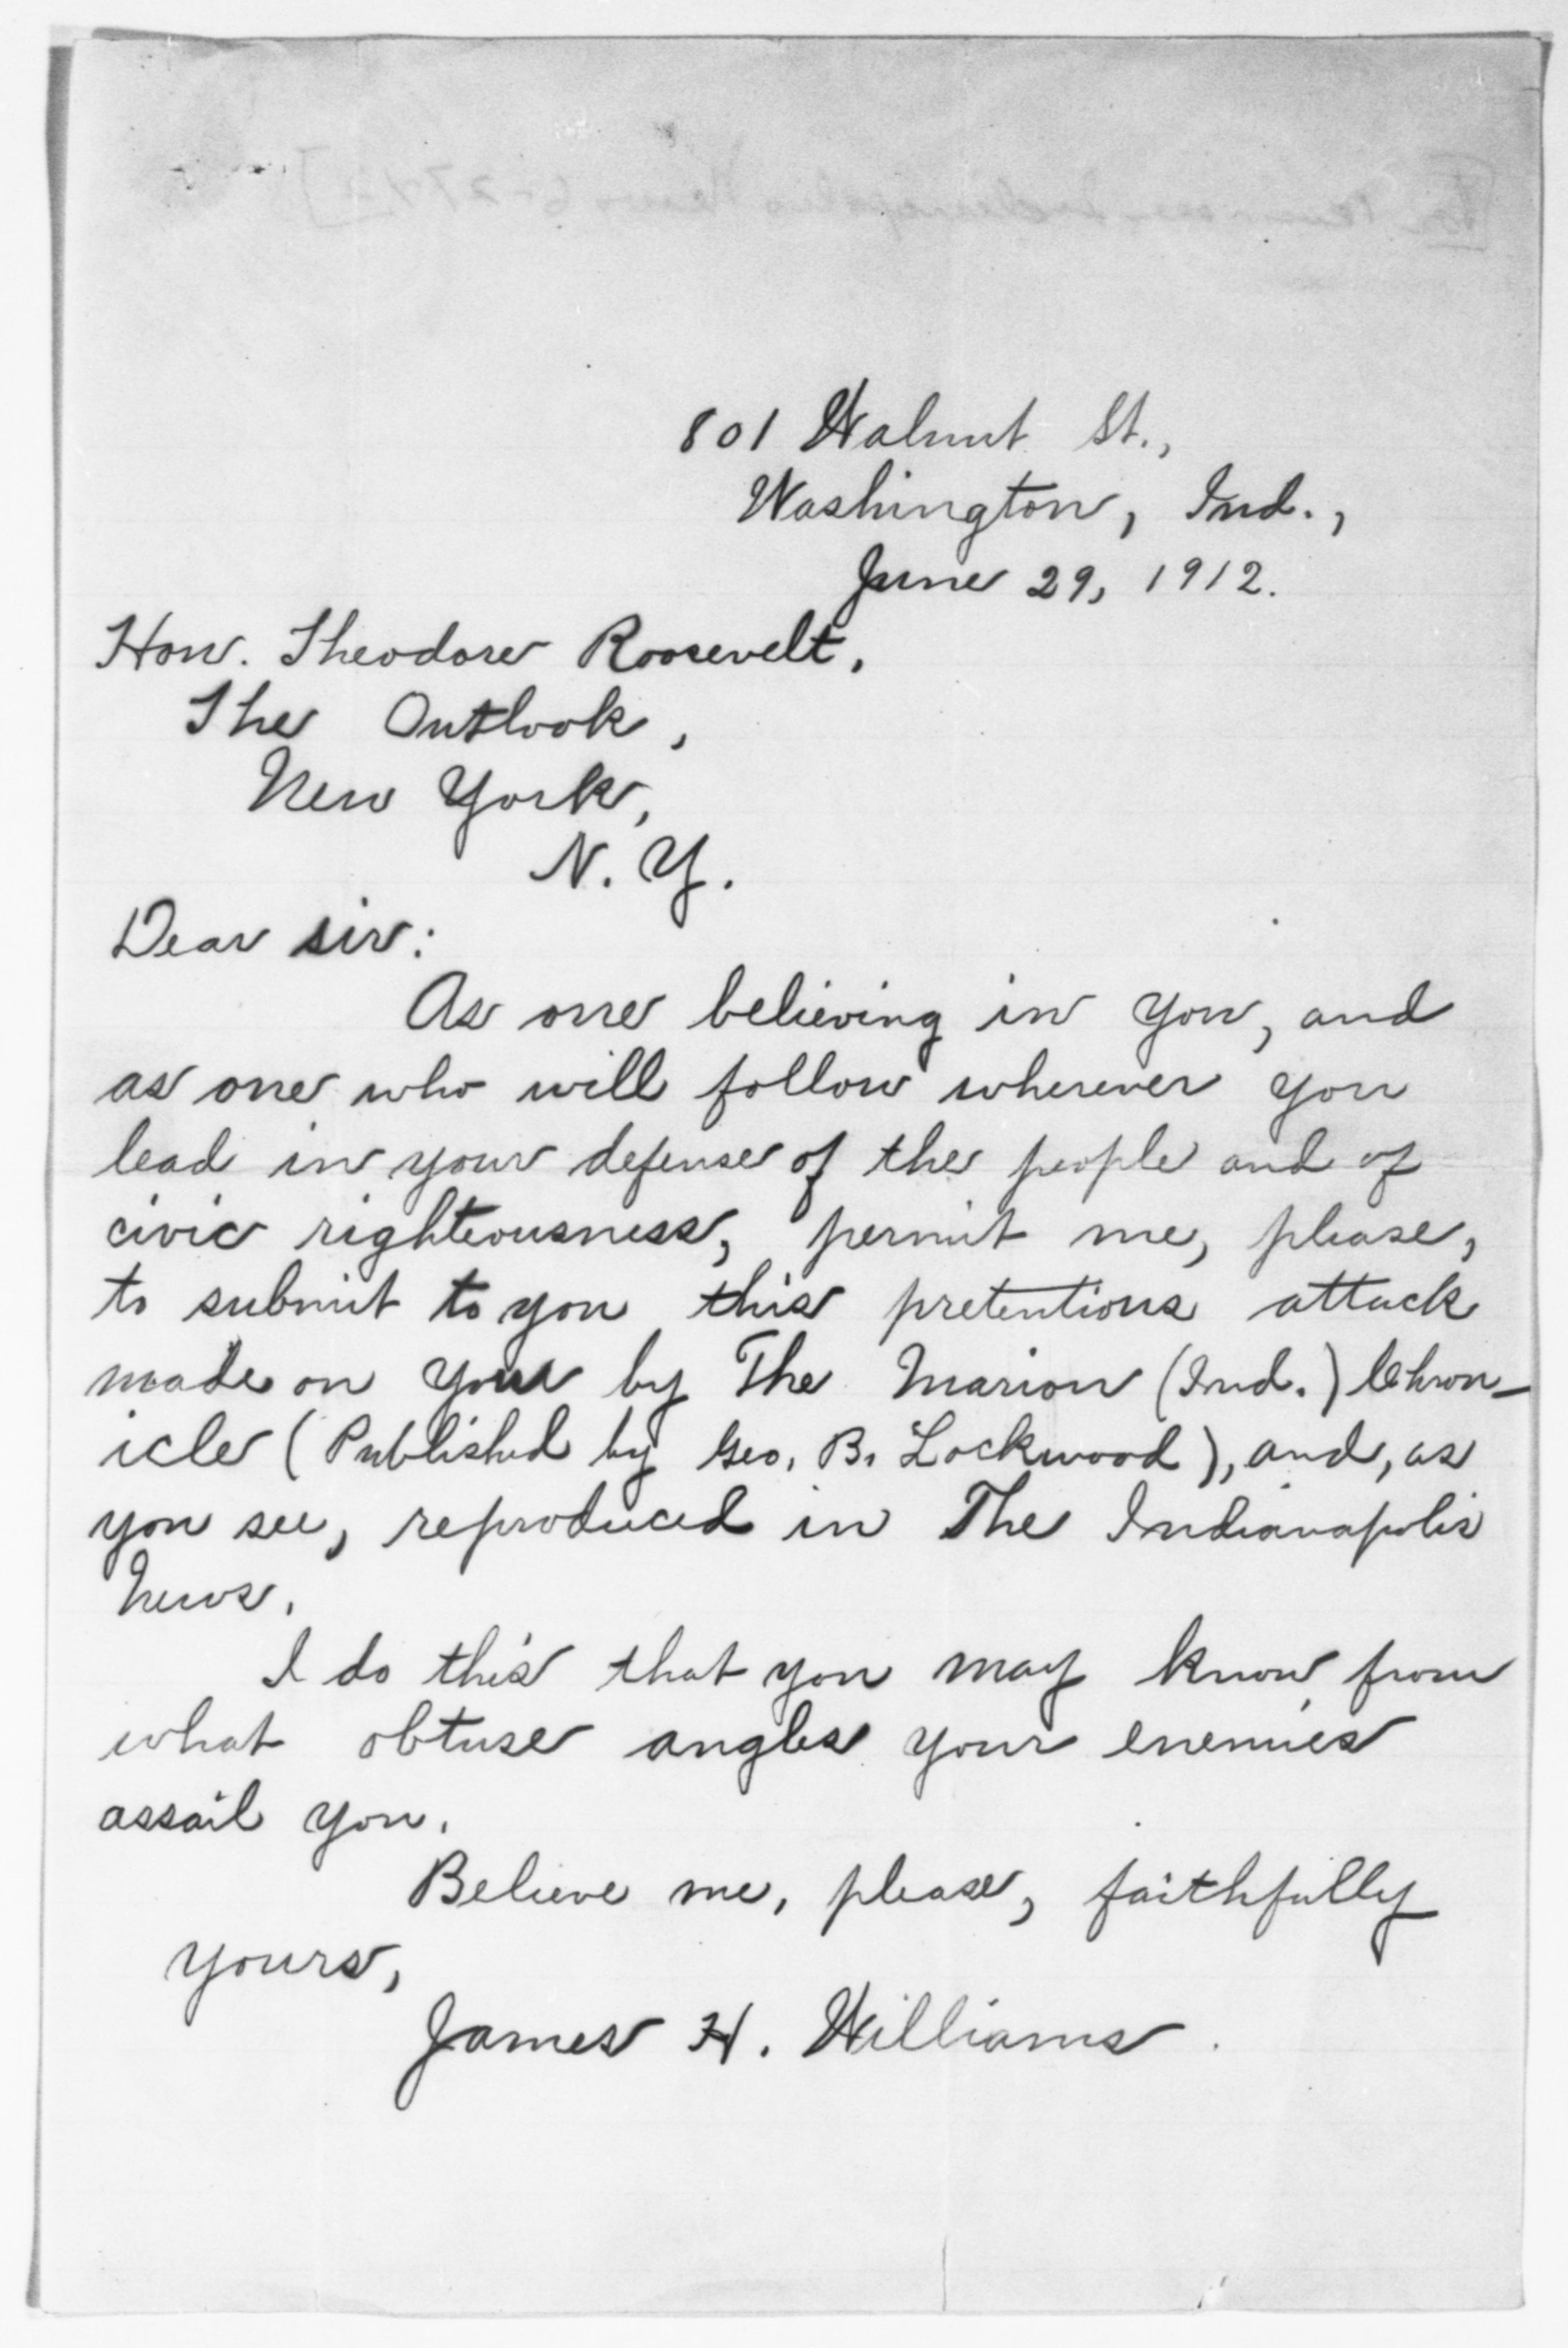 801 Walnut St.,
Washington, Ind.,
June 29, 1912.
Hon. Theodore Roosevelt,
The Outlook,
New York,
N. Y.
Dear sir:
As one believing in you, and
as one who will follow wherever you
lead in your defense of the people and of
civic righteousness, permit me, please,
to submit to you this pretentious attack
made on you by The Marion (Ind.) Chron-
icle (Published by Geo. B. Lockwood), and, as
you see, reproduced in The Indianapolis
News.
I do this that you may know from
what obtuse angles your enemies
assail you.
Believe me, please, faithfully
yours,
James H. Williams